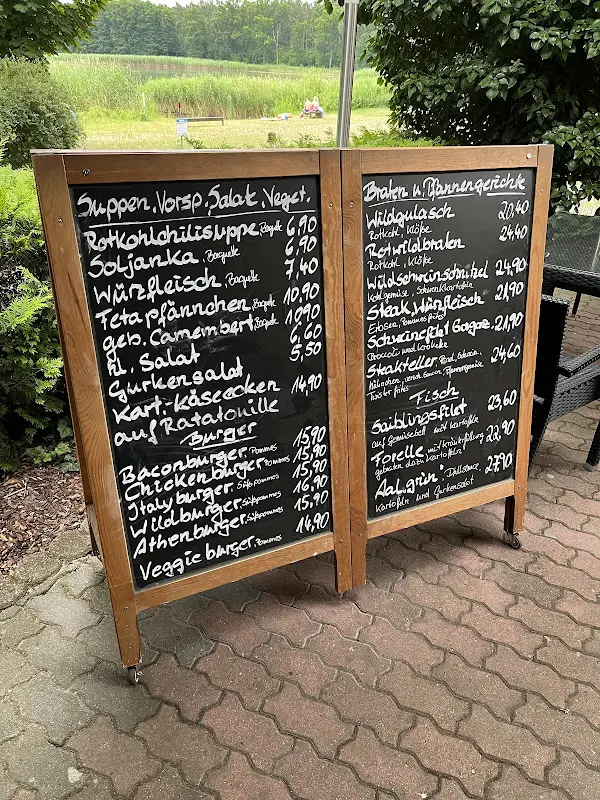 Suppen, Vorsp. Salat, Veget.
Rotkohlchilisuppe, Baguette 6,90
Soljanka, Baguette 6,90
Würzfleisch, Baguette 7,40
Fetapfännchen, Baguette 10,90
geb. Camembert, Baguette 10,90
kl. Salat 6,60
Gurkensalat 5,50
Kart.-Käseecken 14,90
auf Ratatouille
Burger
Baconburger, Pommes 15,90
Chickenburger Pommes 15,90
Italyburger, Süßpommes 15,90
Wildburger, Süßpommes 16,90
Athenburger, Süßpommes 15,90
Veggieburger, Pommes 14,90
Braten u. Pfannengerichte
Wildgulasch 20,40
Rotkohl, Klöße
Rotwildbraten 24,40
Rotkohl, Klöße
Wildschweinschnitzel 24,90
Kohlgemüse, Schwenkkartoffeln
Steak, Würzfleisch 21,90
Erbsen, Pommes frites
Schweinefilet Gorgonz. 21,90
Broccoli und Kroketten
Steakteller, Rind, Schwein, 24,60
Hähnchen, versch. Saucen, Pfannengemüse
Twister frites
Fisch
Saiblingsfilet 23,60
auf Gemüsebett mit Kartoffeln
Forelle mit Kräuterfüllung 22,90
gebraten dazu Kartoffeln
Aal „grün", Dillsauce, 27,90
Kartoffeln und Gurkensalat